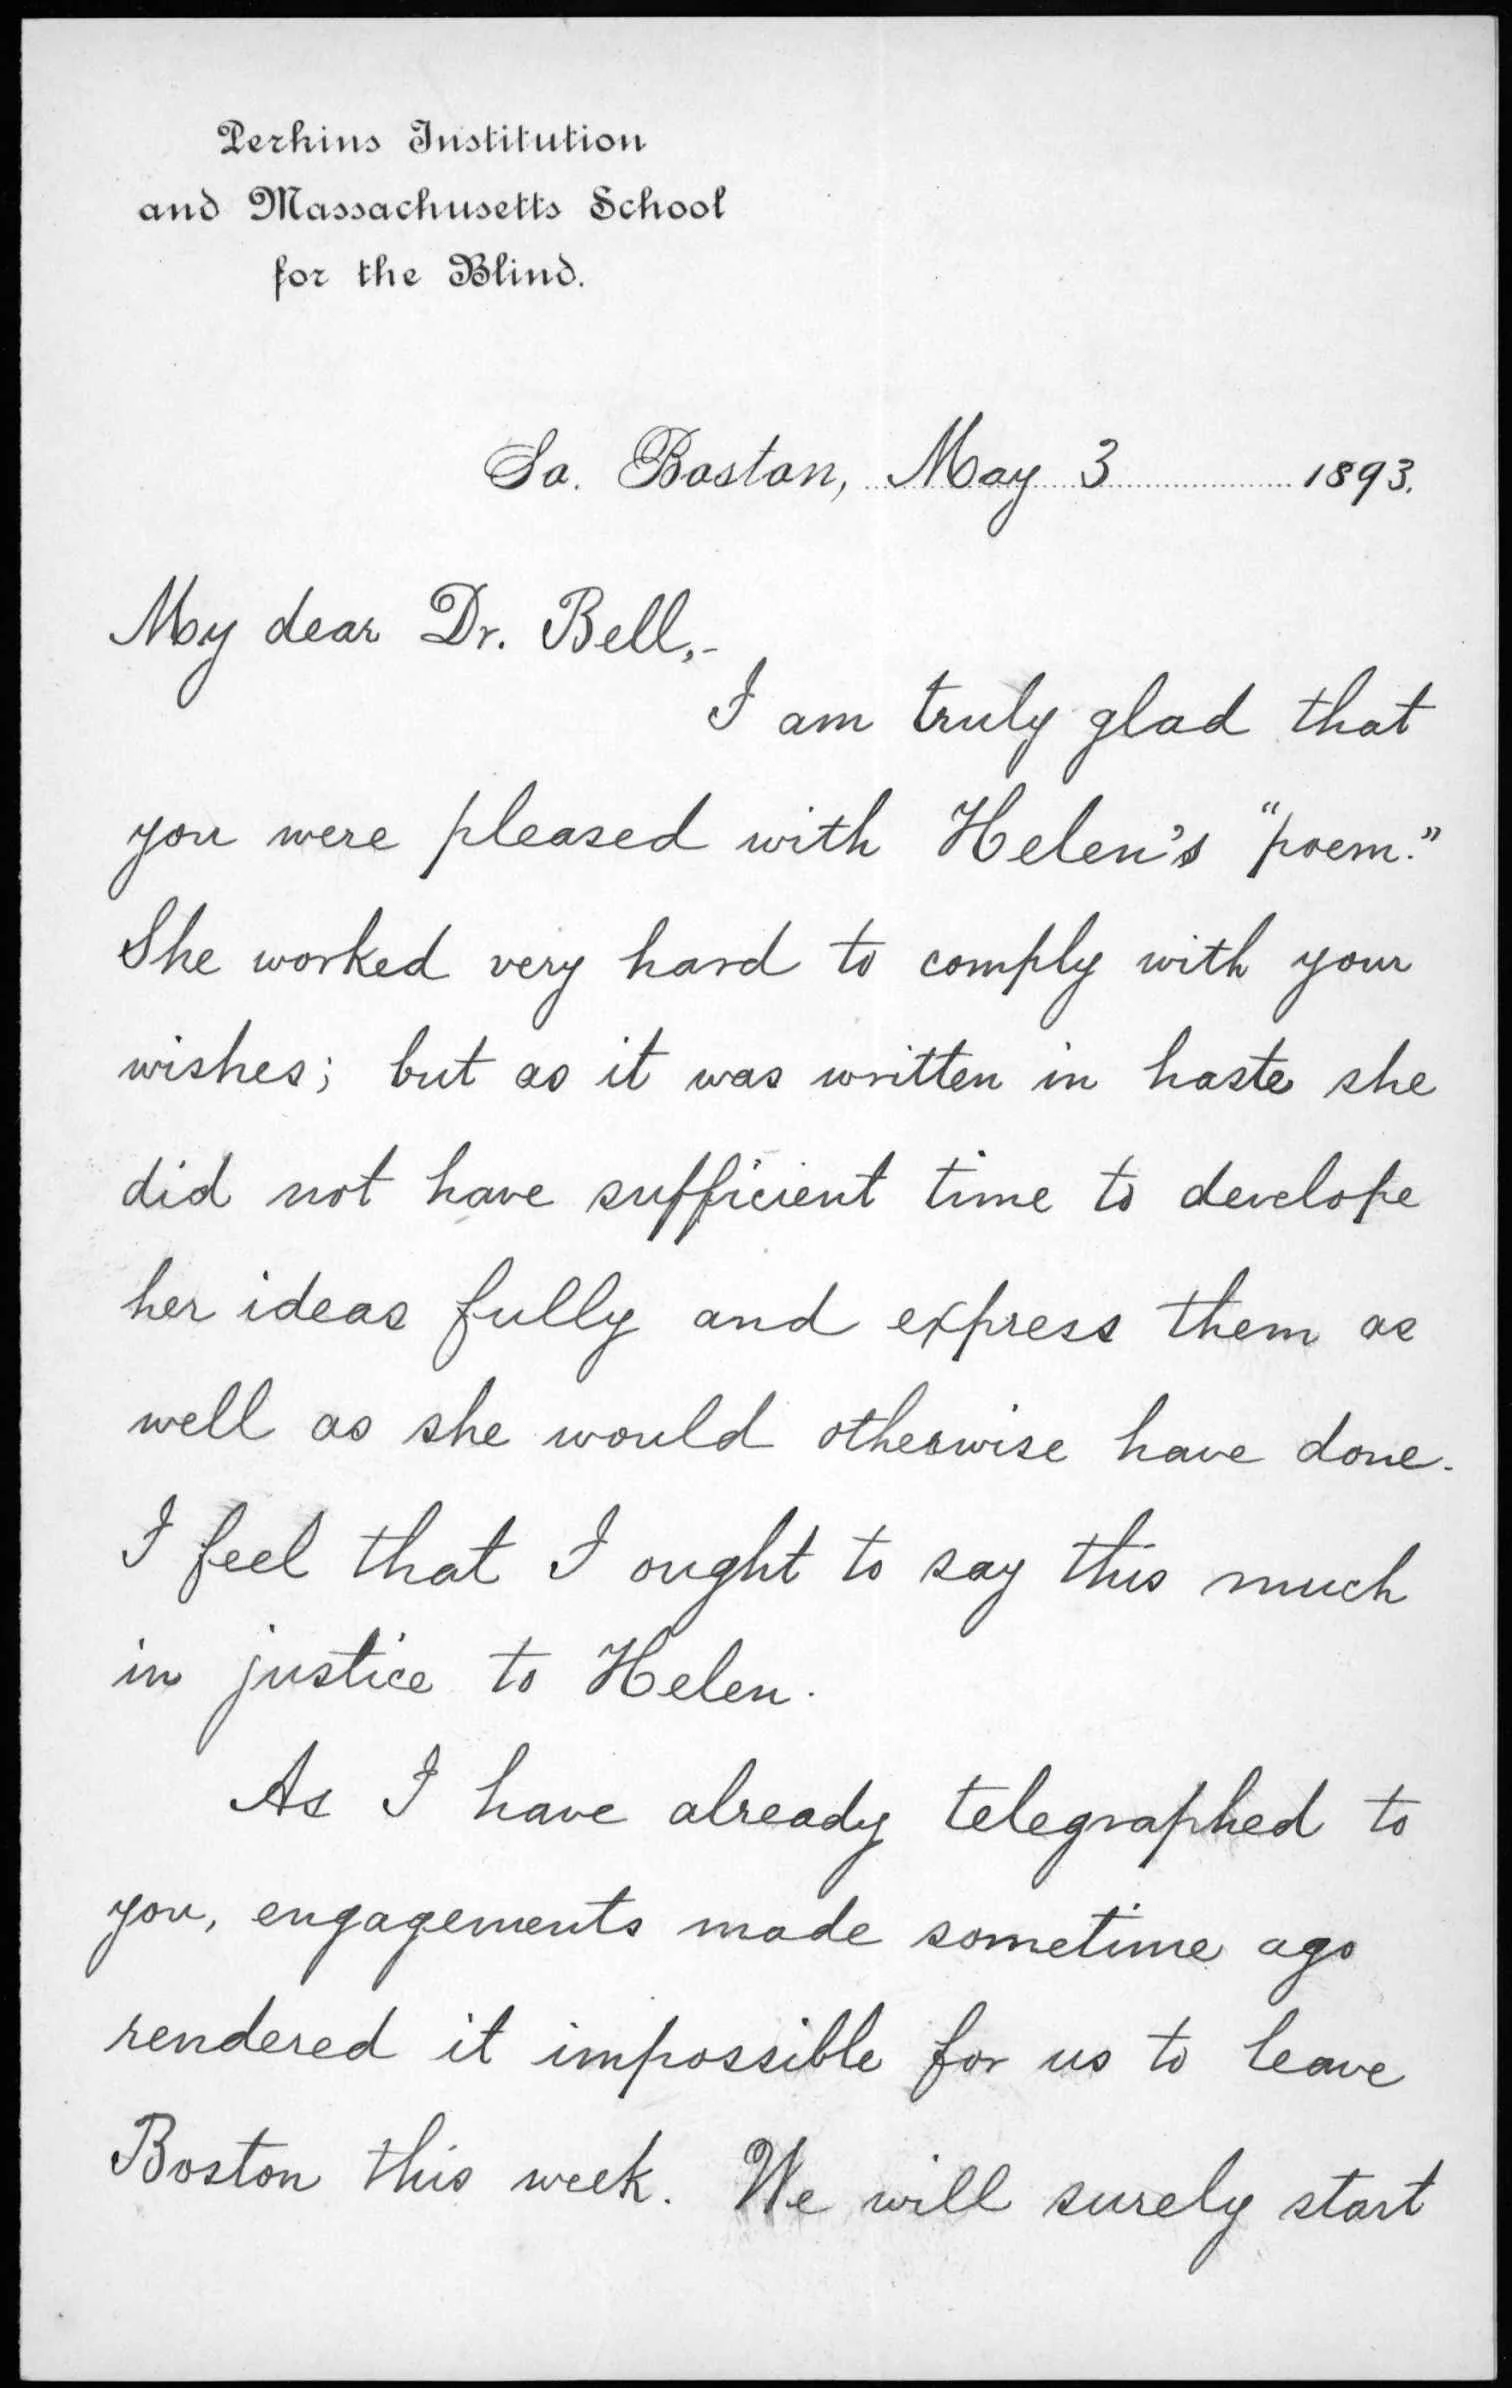 Perkins Institution
and Massachusetts School
for the Blind.
So. Boston, May 3 1893.
My dear Dr. Bell,-
I am truly glad that
you were pleased with Helen's "poem."
She worked very hard to comply with your
wishes; but as it was written in haste she
did not have sufficient time to develope
her ideas fully and express them as
well as she would otherwise have done.
I feel that I ought to say this much
in justice to Helen.
As I have already telegraphed to
you, engagements made sometime ago
rendered it impossible for us to leave
Boston this week. We will surely start